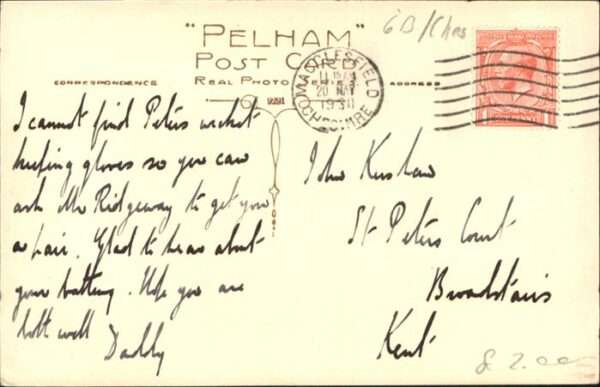 6B/Ches
"PELHAM"
POST CARD
REAL PHOTO SERIES
CORRESPONDENCE
ADDRESS
MACCLESFIELD
20 MAY
1930
CHESHIRE
I cannot find Peters wicket
keeping gloves so you can
ask Mr Ridgeway to get you
a pair. Glad to hear about
your batting. Hope you are
both well
Daddy
John Kershaw
St Peters Court
Broadstairs
Kent